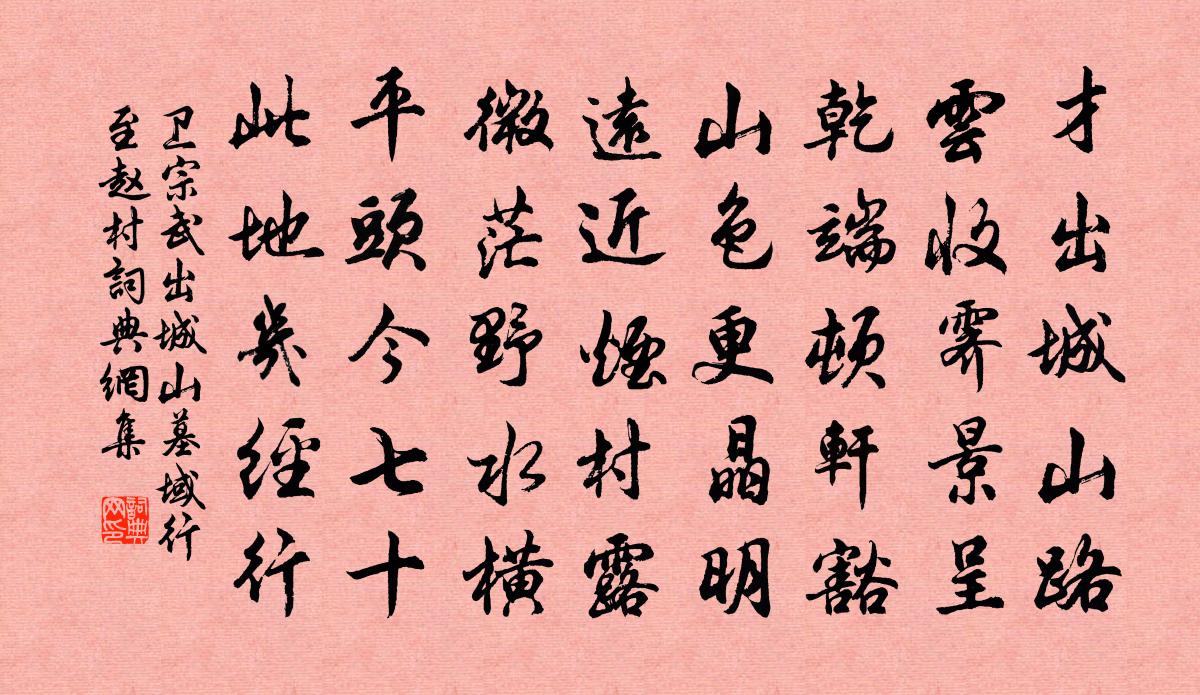 才出城山路
雲收霽景呈
乾端頓軒豁
山色更晶明
遠近煙村露
微茫野水橫
平頭今七十
此地幾經行
卫宗武出城山墓域行
至赵村詞典網集
詞典
网印